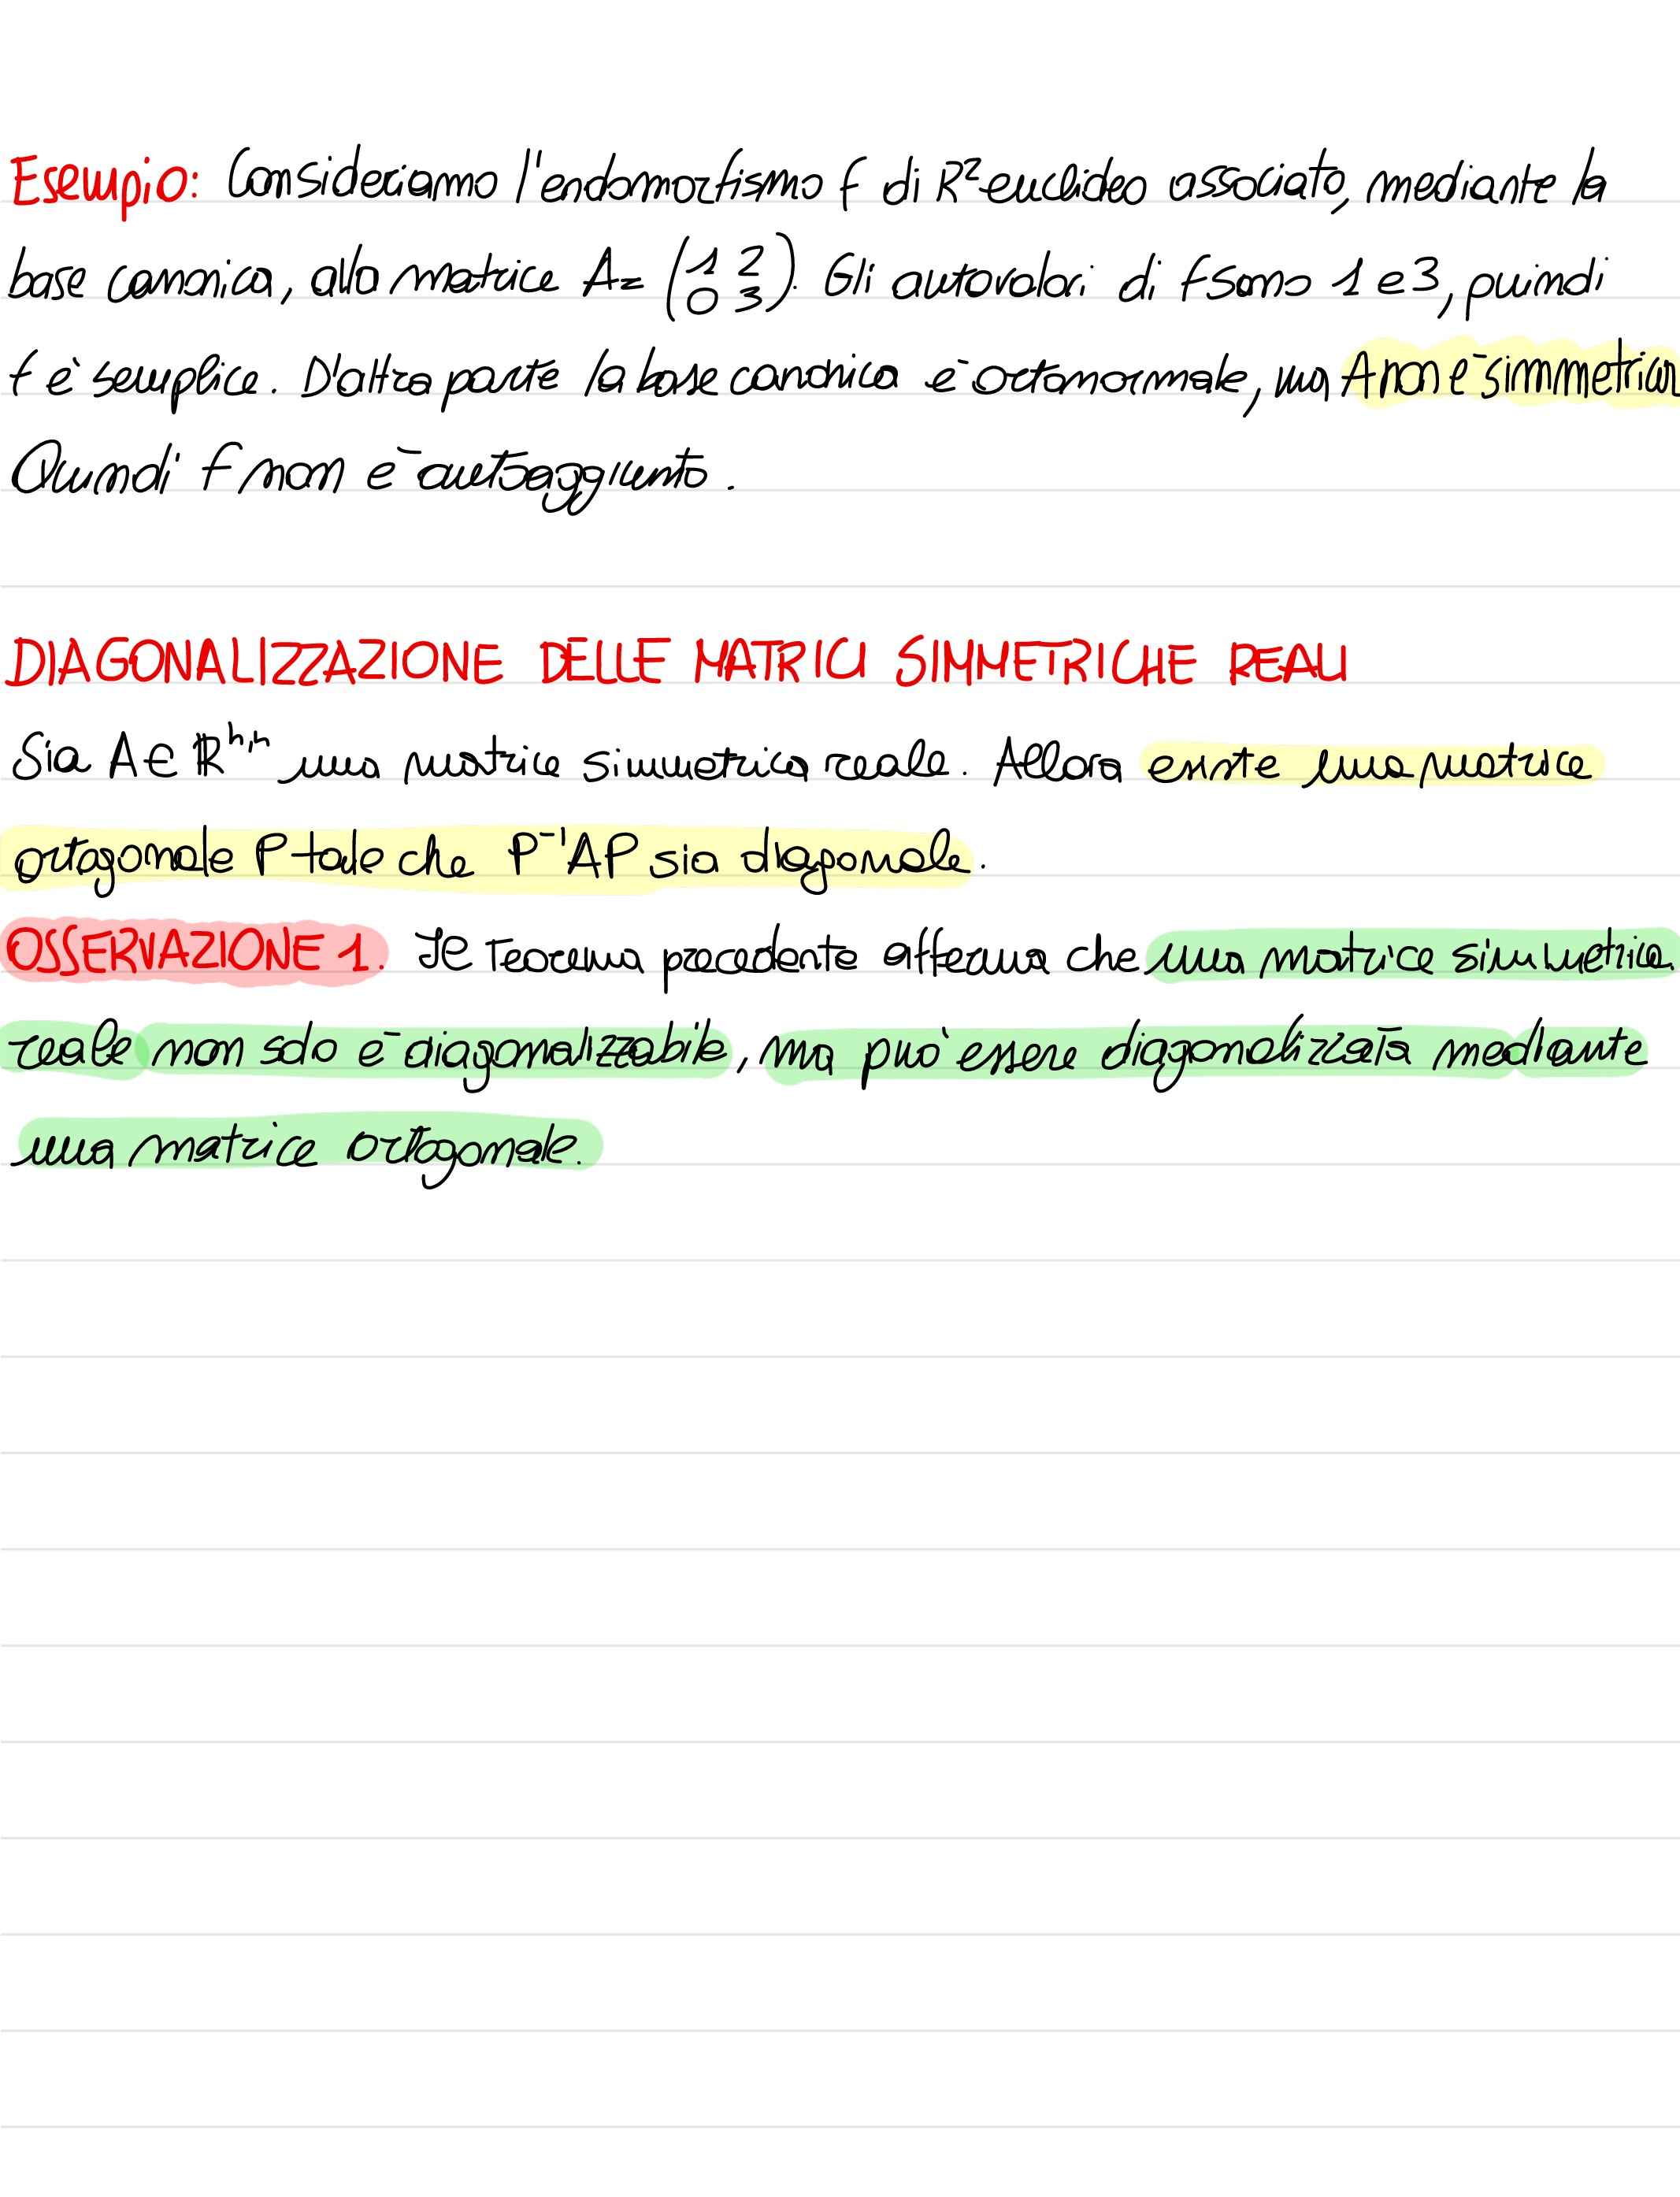 Esempio: Consideriamo l'endomorfismo f di R² euclideo associato, mediante la
base canonica, alla matrice A= (1 2
0 3). Gli autovalori di f sono 1 e 3, quindi
f è semplice. D'altra parte la base canonica è ortonormale, ma A non è simmetrica
Quindi f non è autoaggiunto.
DIAGONALIZZAZIONE DELLE MATRICI SIMMETRICHE REALI
Sia A ∈ ℝⁿ,ⁿ una matrice simmetrica reale. Allora esiste una matrice
ortogonale P tale che P⁻¹AP sia diagonale.
OSSERVAZIONE 1. Il Teorema precedente afferma che una matrice simmetrica
reale non solo è diagonalizzabile, ma può essere diagonalizzata mediante
una matrice ortogonale.